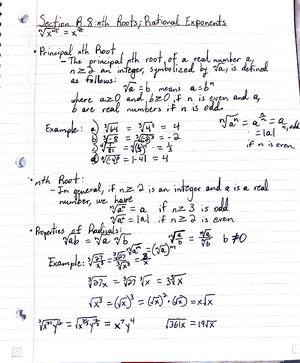 Section R.8: nth Roots; Rational Exponents
• Principal nth Root
- The principal nth root, of a real number a,
n≥2 an integer, symbolized by ⁿ√a, is defined
as follows:
ⁿ√a = b means a=bⁿ
where a≥0 and b≥0 if n is even and a,
b are real numbers if n is odd
Example: a) ³√64 = ³√4³ = 4
= |a|
if n is even
• nth Root:
- In general, if n≥2 is an integer and a is a real
number, we have
ⁿ√aⁿ = a if n≥3 is odd
ⁿ√aⁿ = |a| if n≥2 is even
• Properties of Radicals:
ⁿ√ab = ⁿ√a ⁿ√b b≠0
Example:
³√27x = ³√27 ³√x = 3 ³√x
√x³ = (√x)³ = (√x)²·(√x) = x√x
= x⁷y⁴
√361x = 19√x